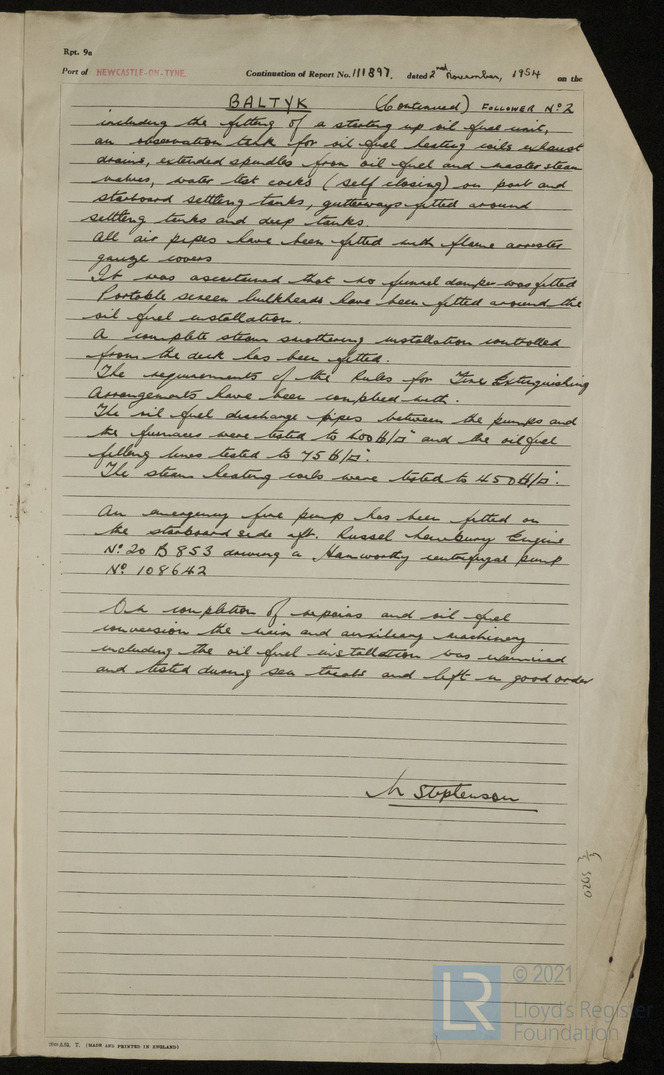 Rpt. 9a
Port of NEWCASTLE-ON-TYNE. Continuation of Report No. 111897. dated 2nd November, 1954 on the
BALTYK (Continued) FOLLOWER No 2
including the fitting of a starting up oil fuel unit,
an observation tank for oil fuel heating coils exhaust
drains, extended spindles from oil fuel and master steam
valves, water test cocks (self closing) on port and
starboard settling tanks, gutterways fitted around
settling tanks and deep tanks.
All air pipes have been fitted with flame arrester
gauze covers
It was ascertained that no funnel damper was fitted
Portable screen bulkheads have been fitted around the
oil fuel installation.
A complete steam smothering installation controlled
from the deck has been fitted.
The requirements of the Rules for Fire Extinguishing
Arrangements have been complied with.
The oil fuel discharge pipes between the pumps and
the furnaces were tested to 400 lb/□" and the oil fuel
filling lines tested to 75 lb/□".
The steam heating coils were tested to 450 lb/□".
An emergency fire pump has been fitted on
the starboard side aft. Russel Newbury Engine
No 20 B 853 driving a Hamworthy centrifugal pump
No 108642
On completion of repairs and oil fuel
conversion the main and auxiliary machinery
including the oil fuel installation was examined
and tested during sea trials and left in good order
Stephenson
0265 3/3
(MADE AND PRINTED IN ENGLAND)
LR
© 2021
Lloyd's Register
Foundation